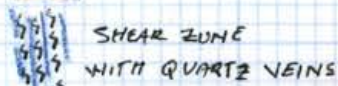 SHEAR ZONE
WITH QUARTZ VEINS